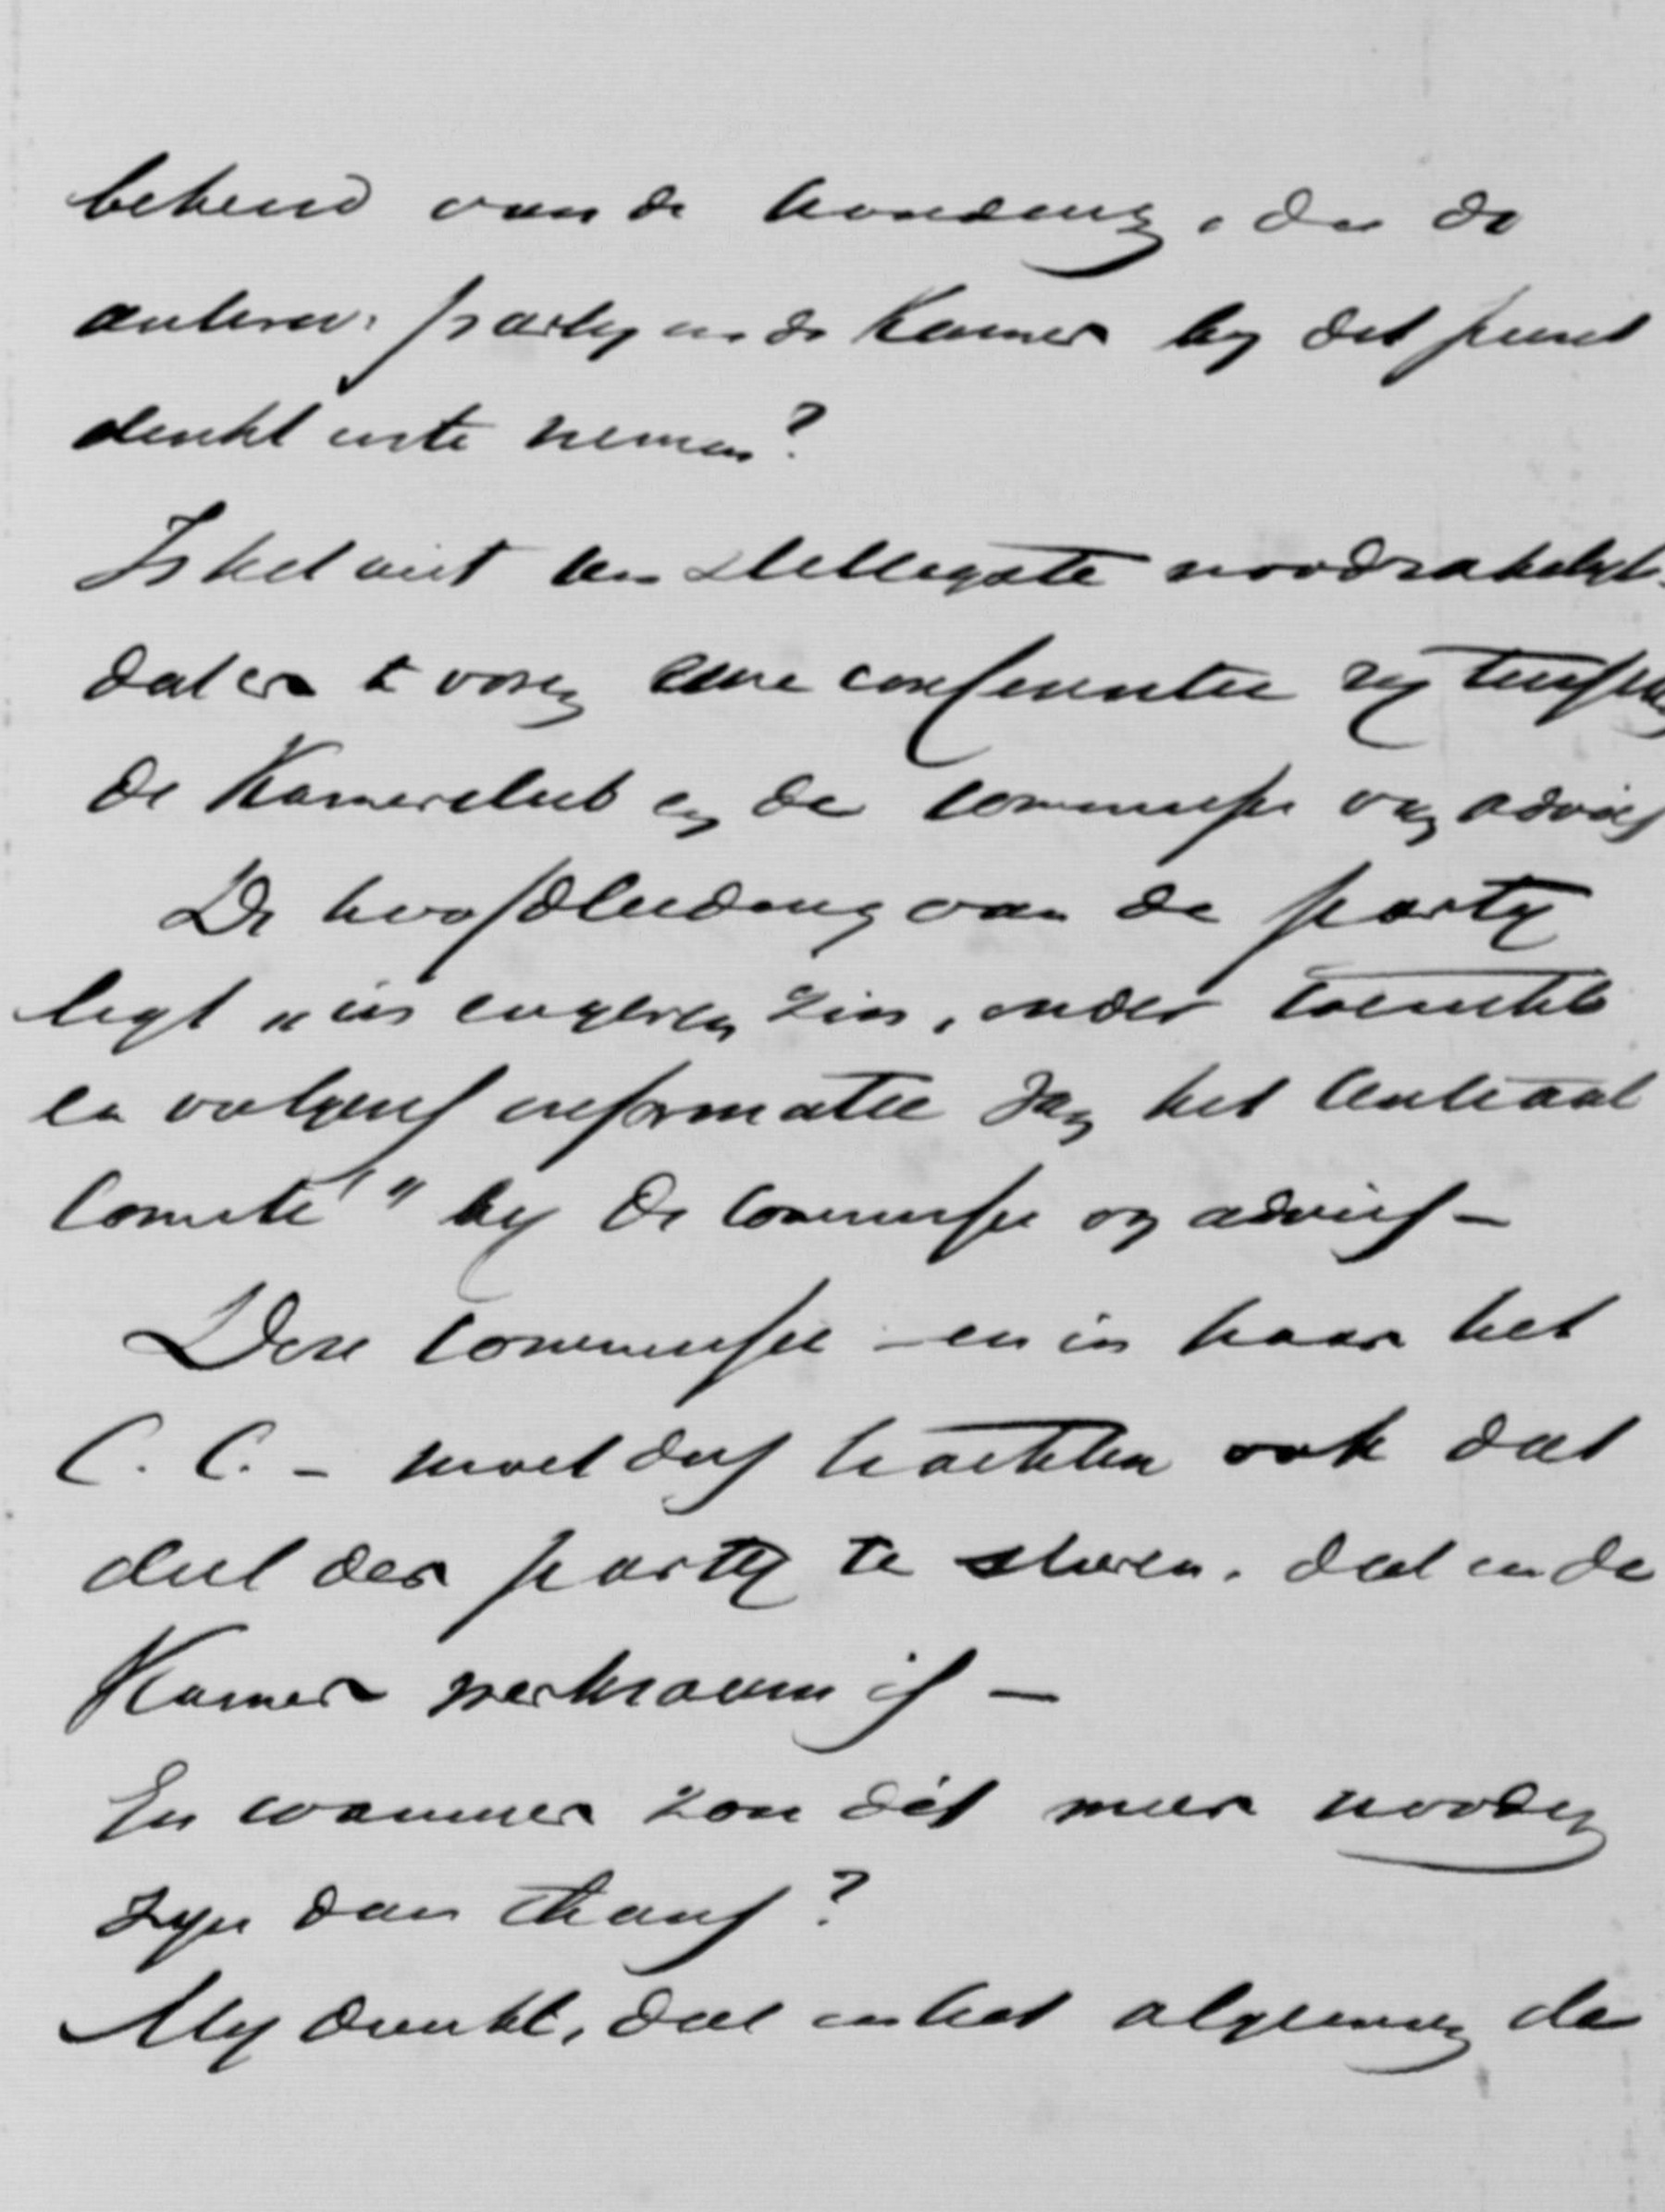 bekend van de houding, die de
antirev. party in de Kamer by dit punt
denkt in te nemen?
Is het niet ten stelligste noodzakelyk
dat er te voren eene conferentie zy tusschen
de Kamerclub en de commissie van advies
De hoofdleiding van de party
legt „in engeren zin, onder toezicht
en volgens informatie van het Centraal
Comité" by de commissie van advies –
Deze commissie – en in haar het
C. C. – moet dus trachten ook dat
deel der party te sturen, dat in de
Kamer verkozen is –
En wanneer zou dit meer noodig
zyn dan thans?
My dunkt, dat in het algemeen de